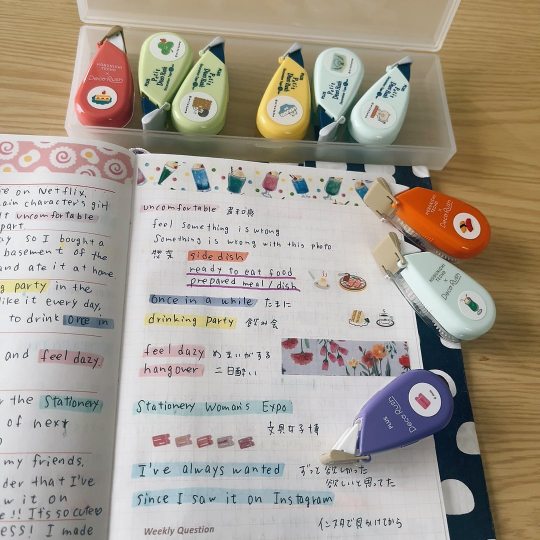 re on Netflix.
ain character's girl
lt uncomfortable
part.
ay so I bought a
basement of the
and ate it at home
ng party in the
like it every day,
to drink once in
and feel dazy.
r the Stationery
of next
my friends.
der that I've
aw it on
ess! It's so cute
ess! I made
uncomfortable 違和感
feel something is wrong
Something is wrong with this photo
惣菜 side dish
ready to eat food
prepared meal / dish
once in a while たまに
drinking party 飲み会
feel dazy めまいがする
hangover 二日酔い
Stationery Woman's Expo
文具女子博
I've always wanted ずっと欲しかった
欲しいと思ってた
Since I saw it on Instagram
インスタで見かけてから
Weekly Question
HOBONICHI TECHO
Deco Rush
PLUS
Petit Deco Rush
HOBONICHI TECHO
Deco Rush
HOBONICHI TECHO
Deco Rush
PLUS
Deco Rush